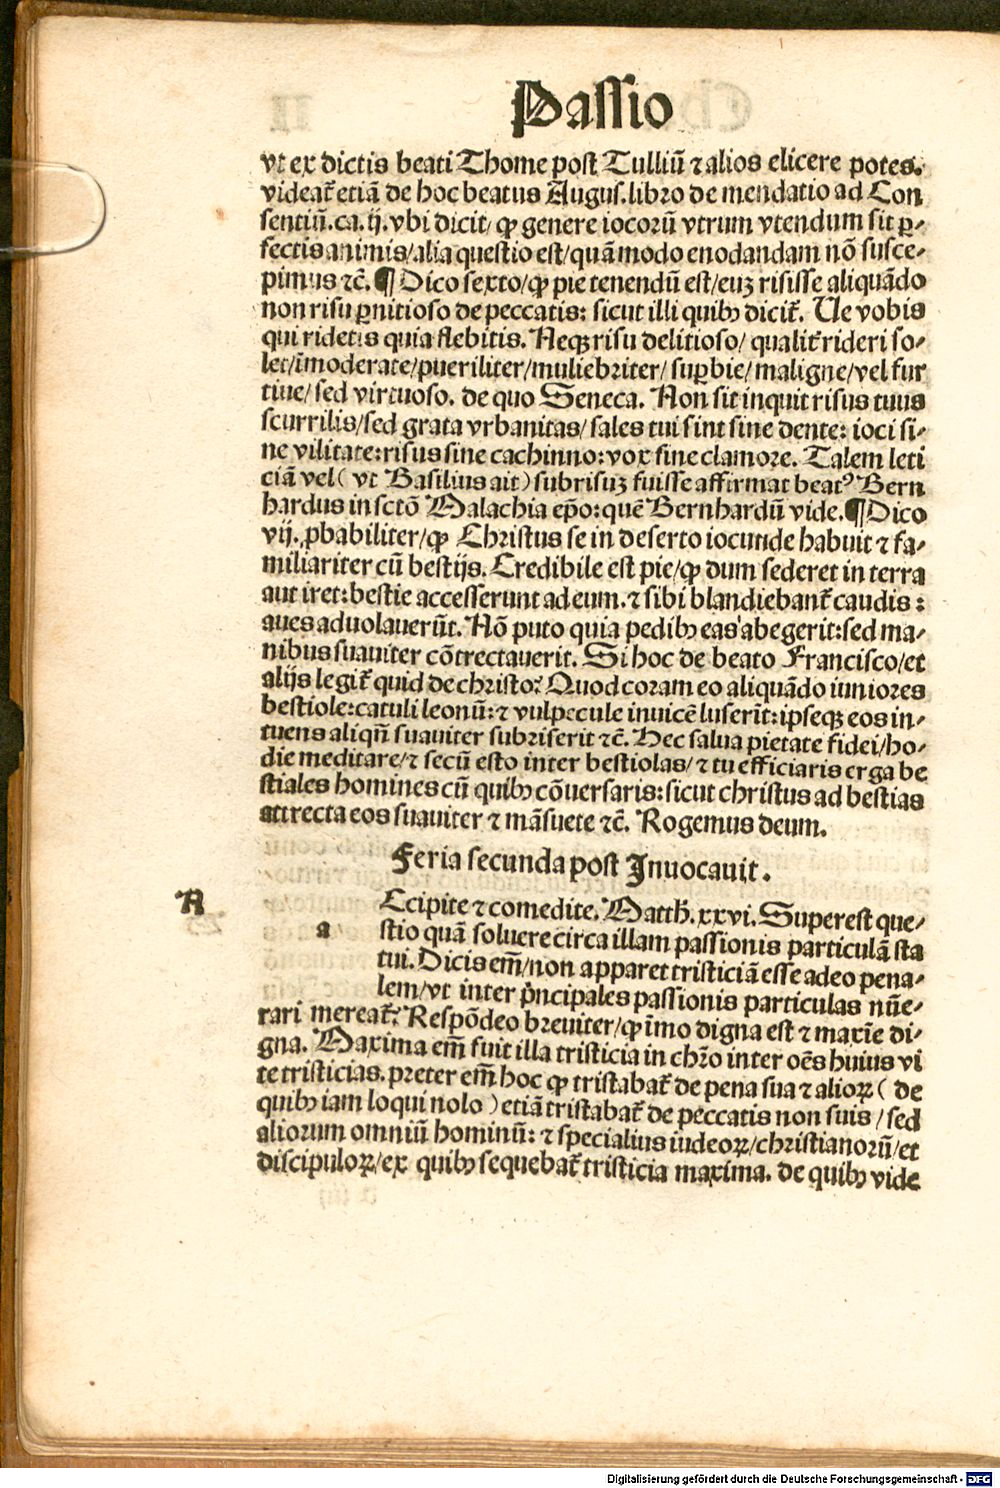 Passio
vt ex dictis beati Thome post Tulliū ⁊ alios elicere potes.
videat᷑ etiā de hoc beatus Augus. libro de mendatio ad Con
sentiū. ca. ij. vbi dicit/ ꝙ genere iocorū vtrum vtendum sit ꝑ-
fectis animis/ alia questio est/ quā modo enodandam nō susce-
pimus ⁊c̄. ¶ Dico sexto/ ꝙ pie tenendū est/ euʒ risisse aliquādo
non risu ꝑnitioso de peccatis: sicut illi quibꝰ dicit᷑. Ue vobis
qui ridetis quia flebitis. Neqꝫ risu delitioso/ qualit᷑ rideri so-
let/ īmoderate/ pueriliter/ muliebriter/ suꝑbie/ maligne/ vel fur
tiue/ sed virtuoso. de quo Seneca. Non sit inquit risus tuus
scurrilis/ sed grata vrbanitas/ sales tui sint sine dente: ioci si-
ne vilitate: risus sine cachinno: vox sine clamore. Talem leti
ciā vel ( vt Basilius ait ) subrisuʒ fuisse affirmat beatꝰ Bern
hardus in sctō Malachia ep̄o: quē Bernhardū vide. ¶ Dico
vij. ꝓbabiliter/ ꝙ Christus se in deserto iocunde habuit ⁊ fa-
miliariter cū bestijs. Credibile est pie/ ꝙ dum sederet in terra
aut iret: bestie accesserunt ad eum. ⁊ sibi blandiebant᷑ caudis :
aues aduolauerūt. Nō puto quia pedibꝰ eas abegerit: sed ma-
nibus suauiter cōtrectauerit. Si hoc de beato Francisco/ et
alijs legit᷑ quid de christo? Quod coram eo aliquādo iuniores
bestiole: catuli leonū: ⁊ vulpecule inuicē luserīt: ipseqꝫ eos in-
tuens aliqn̄ suauiter subriserit ⁊c̄. Hec salua pietate fidei/ ho-
die meditare/ ⁊ secū esto inter bestiolas/ ⁊ tu efficiaris erga be
stiales homines cū quibꝰ cōuersaris: sicut christus ad bestias
attrecta eos suauiter ⁊ māsuete ⁊c̄. Rogemus deum.
Feria secunda post Inuocauit.
A
a
Ccipite ⁊ comedite. Matth̄. xxvi. Superest que-
stio quā soluere circa illam passionis particulā sta
tui. Dicis em̄/ non apparet tristiciā esse adeo pena-
lem/ vt inter pͥncipales passionis particulas nūe-
rari mereat᷑? Respōdeo breuiter/ ꝙ īmo digna est ⁊ maxīe di-
gna. Maxima em̄ fuit illa tristicia in chr̄o inter oēs huius vi
te tristicias. preter em̄ hoc ꝙ tristabat᷑ de pena sua ⁊ alioꝝ ( de
quibꝰ iam loqui nolo ) etiā tristabat᷑ de peccatis non suis / sed
aliorum omniū hominū: ⁊ specialius iudeoꝝ/ christianorū/ et
discipuloꝝ/ ex quibꝰ sequebat᷑ tristicia maxima. de quibꝰ vide
Digitalisierung gefördert durch die Deutsche Forschungsgemeinschaft - DFG